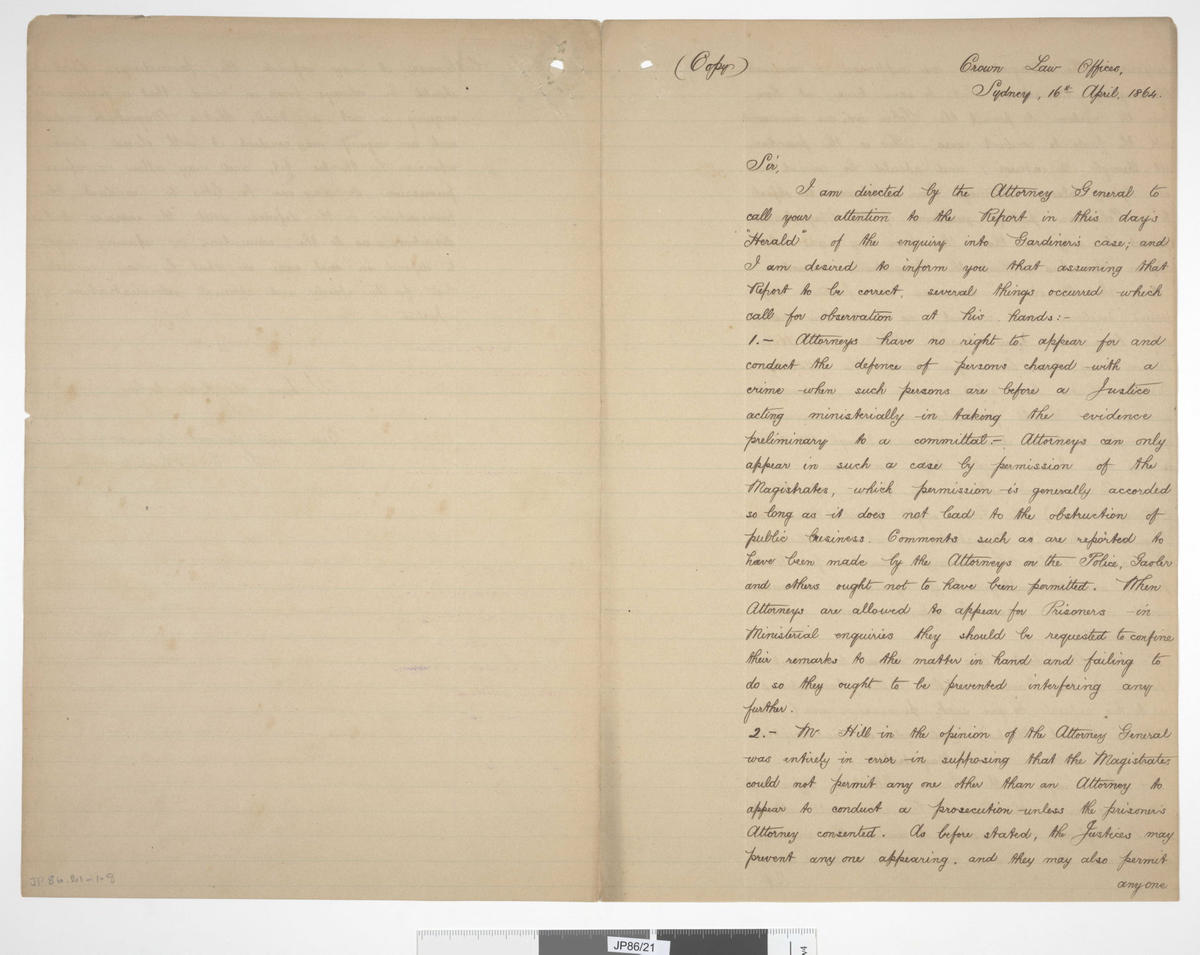 (Copy)
Crown Law Offices,
Sydney, 16th April, 1864.
Sir,
I am directed by the Attorney General to
call your attention to the Report in this day's
"Herald" of the enquiry into Gardiner's case; and
I am desired to inform you that assuming that
Report to be correct, several things occurred which
call for observation at his hands:-
1.- Attorneys have no right to appear for and
conduct the defence of persons charged with a
crime when such persons are before a Justice
acting ministerially in taking the evidence
preliminary to a committal.- Attorneys can only
appear in such a case by permission of the
Magistrates, which permission is generally accorded
so long as it does not lead to the obstruction of
public business. Comments such as are reported to
have been made by the Attorneys on the Police, Gaoler
and others ought not to have been permitted. When
Attorneys are allowed to appear for Prisoners in
Ministerial enquiries they should be requested to confine
their remarks to the matter in hand and failing to
do so they ought to be prevented interfering any
further.
2.- Mr Hill in the opinion of the Attorney General
was entirely in error in supposing that the Magistrates
could not permit any one other than an Attorney to
appear to conduct a prosecution unless the prisoner's
Attorney consented. As before stated, the Justices may
prevent any one appearing, and they may also permit
any one
JP86/21